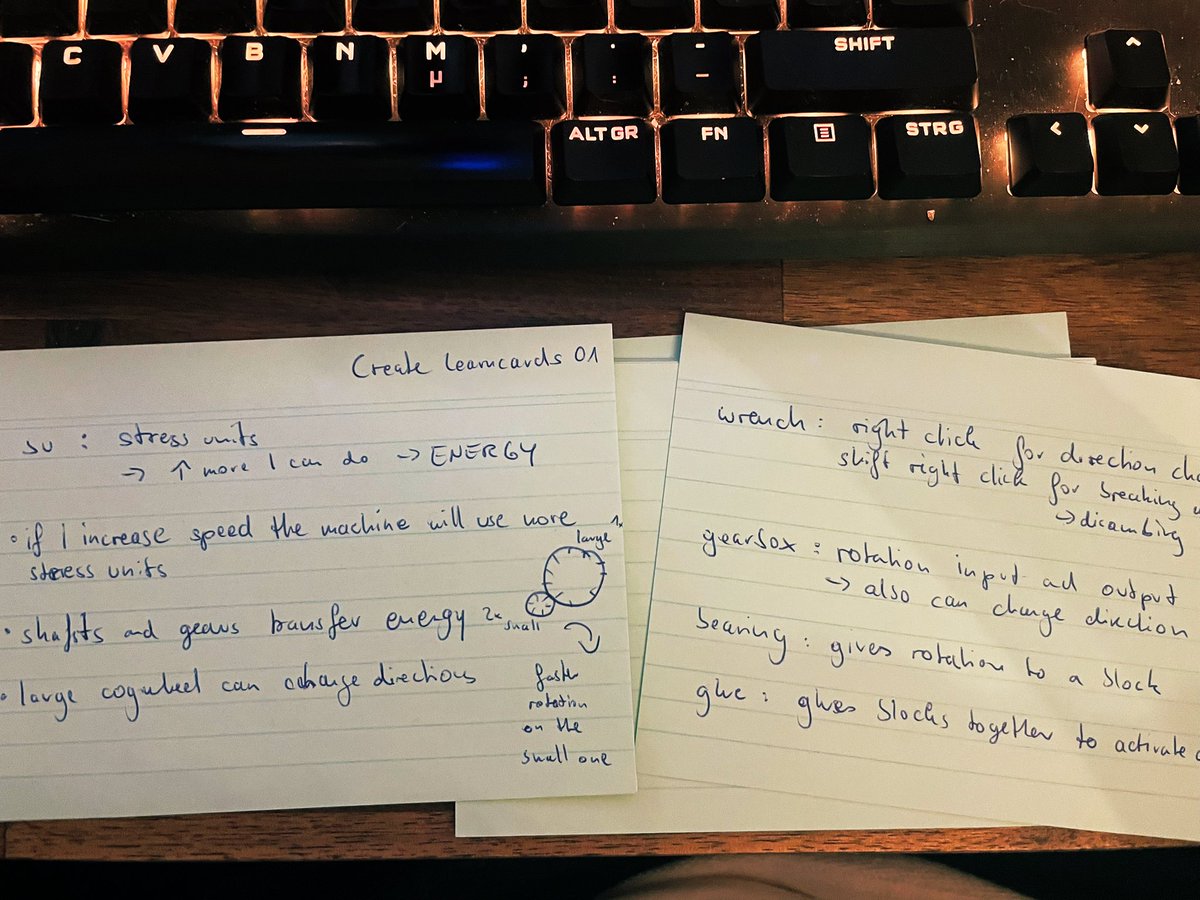 C V B N M , . - SHIFT ^
µ ; : _
ALT GR FN STRG < ⌄
Create learncards 01
su : stress units
→ ↑ more I can do → ENERGY
• if I increase speed the machine will use more
stress units
• shafts and gears transfer energy
• large cogwheel can change directions
1x
large
2x
small
faster
rotation
on the
small one
wrench : right click for direction cha
shift right click for breaking
→ dicambing
gearbox : rotation input ad output
→ also can change direction
bearing : gives rotation to a block
glue : glues blocks together to activate